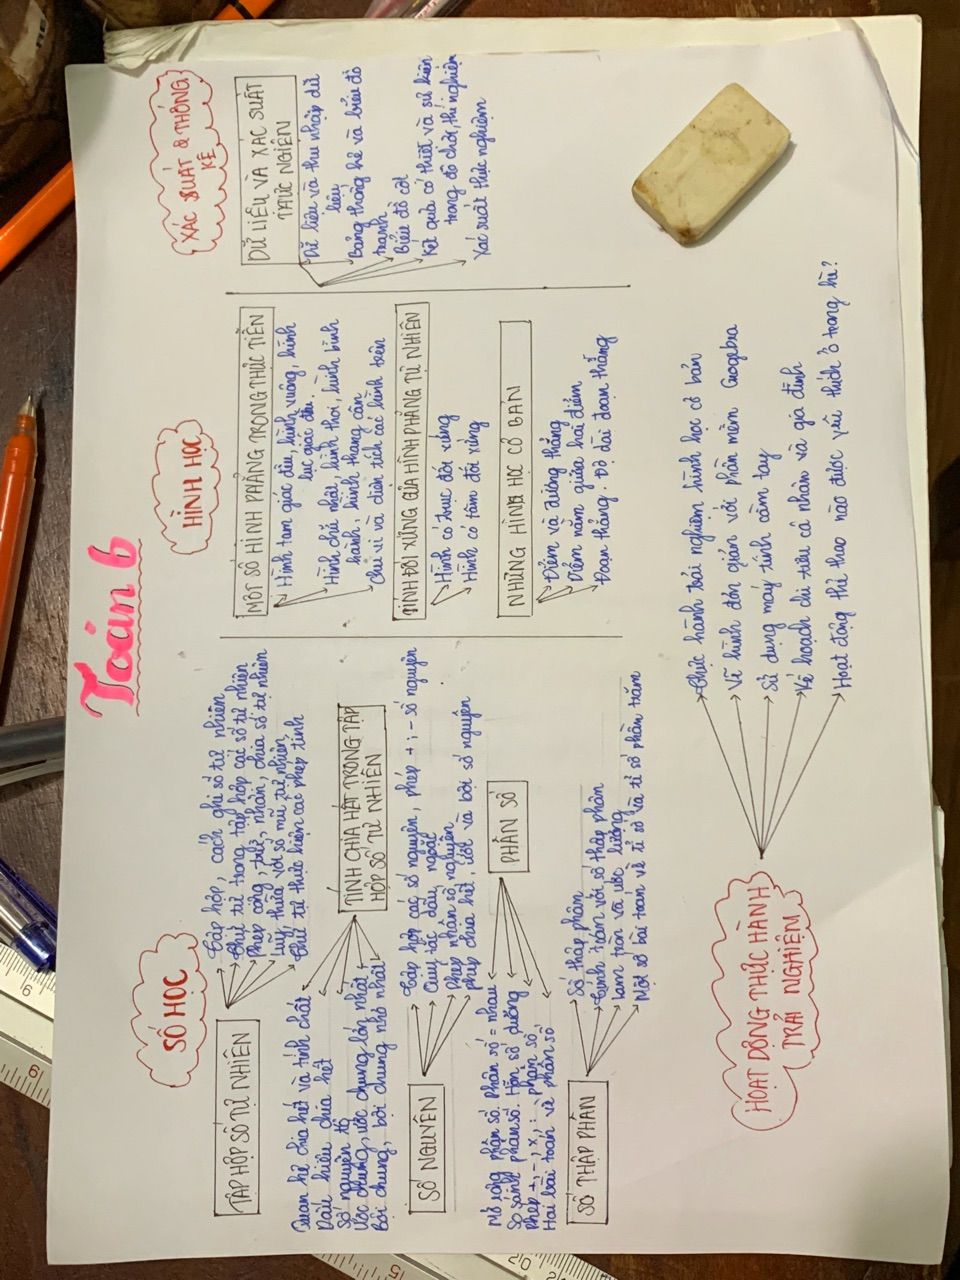 Toán 6
SỐ HỌC
TẬP HỘP SỐ TỰ NHIÊN
Tập hộp, cách ghi số tự nhiên
Thứ tự trong tập hộp các số tự nhiên
Phép cộng, trừ, nhân, chia số tự nhiên
Luỹ thừa với số mũ tự nhiên
Thứ tự thực hiện các phép tính
TÍNH CHIA HẾT TRONG TẬP
HỘP SỐ TỰ NHIÊN
Quan hệ chia hết và tính chất
Dấu hiệu chia hết
Số nguyên tố
Ước chung, ước chung lớn nhất
Bội chung, bội chung nhỏ nhất
SỐ NGUYÊN
Tập hộp các số nguyên, phép + ; - số nguyên
Quy tắc dấu ngoặc
Phép nhân số nguyên
Phép chia hết, ước và bội số nguyên
PHÂN SỐ
Mở rộng phân số. Phân số = nhau
So sánh phân số. Hỗn số dương
Phép +, -, x, : phân số
Hai bài toán về phân số
SỐ THẬP PHÂN
Số thập phân
Tính toán với số thập phân
Làm tròn và ước lượng
Một số bài toán về tỉ số và tỉ số phần trăm
HÌNH HỌC
MỘT SỐ HÌNH PHẲNG TRONG THỰC TIỄN
Hình tam giác đều, hình vuông, hình
lục giác đều.
Hình chữ nhật, hình thoi, hình bình
hành, hình thang cân
Chu vi và diện tích các hình trên
TÍNH ĐỐI XỨNG CỦA HÌNH PHẲNG TỰ NHIÊN
Hình có trục đối xứng
Hình có tâm đối xứng
NHỮNG HÌNH HỌC CƠ BẢN
Điểm và đường thẳng
Điểm nằm giữa hai điểm
Đoạn thẳng. Độ dài đoạn thẳng
XÁC SUẤT & THỐNG
KÊ
DỮ LIỆU VÀ XÁC SUẤT
THỰC NGHIÊN
Dữ liệu và thu nhập dữ
liệu
Bảng thống kê và biểu đồ
tranh
Biểu đồ cột
Kết quả có thiết và sử kiện
trong đồ chơi, thí nghiệm
Xác suất thực nghiệm
HOẠT ĐỘNG THỰC HÀNH
TRẢI NGHIỆM
Thực hành trải nghiệm hình học cơ bản
Vẽ hình đơn giản với phần mềm Geogebra
Sử dụng máy tính cầm tay
Kế hoạch chi tiêu cá nhân và gia đình
Hoạt động thể thao nào được yêu thích ở trong hè?